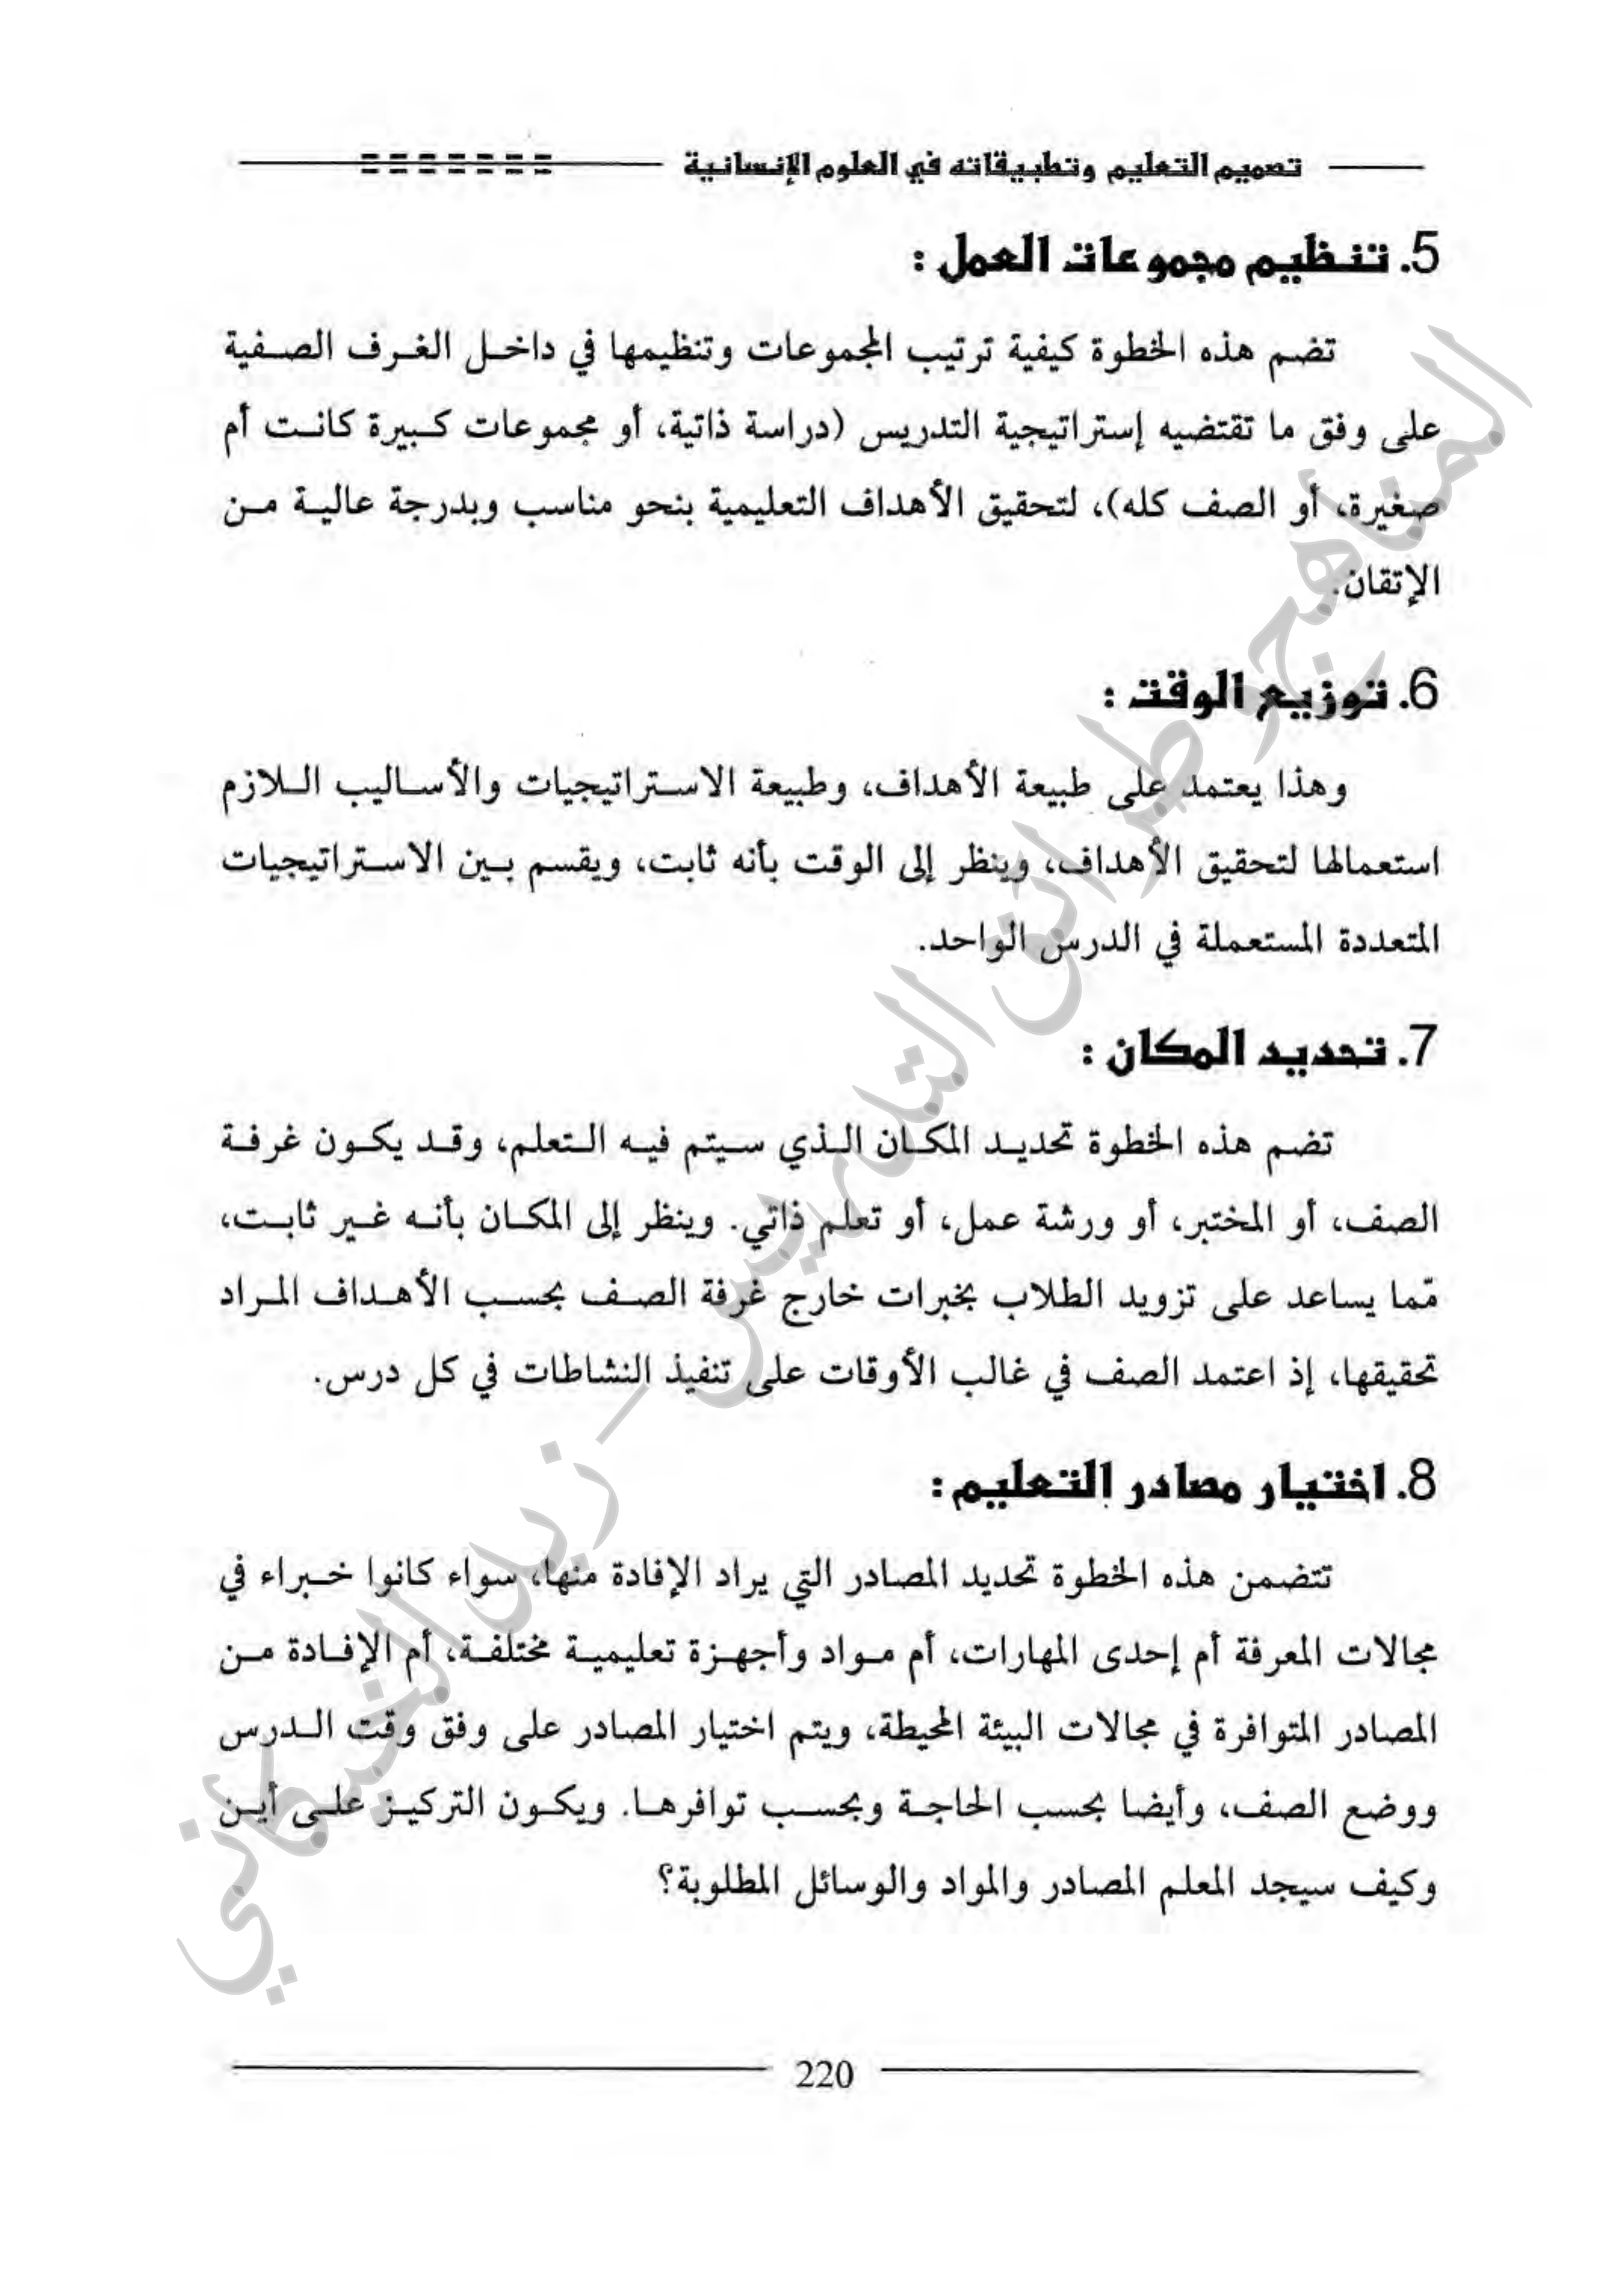 تصميم التعليم وتطبيقاته في العلوم الإنسانية
5. تنظيم مجموعات العمل :
تضم هذه الخطوة كيفية ترتيب المجموعات وتنظيمها في داخل الغرف الصفية
على وفق ما تقتضيه إستراتيجية التدريس (دراسة ذاتية، أو مجموعات كبيرة كانت أم
صغيرة، أو الصف كله)، لتحقيق الأهداف التعليمية بنحو مناسب وبدرجة عالية من
الإتقان.
6. توزيع الوقت :
وهذا يعتمد على طبيعة الأهداف، وطبيعة الاستراتيجيات والأساليب اللازم
استعمالها لتحقيق الأهداف، وينظر إلى الوقت بأنه ثابت، ويقسم بين الاستراتيجيات
المتعددة المستعملة في الدرس الواحد.
7. تحديد المكان :
تضم هذه الخطوة تحديد المكان الذي سيتم فيه التعلم، وقد يكون غرفة
الصف، أو المختبر، أو ورشة عمل، أو تعلم ذاتي. وينظر إلى المكان بأنه غير ثابت،
مّما يساعد على تزويد الطلاب بخبرات خارج غرفة الصف بحسب الأهداف المراد
تحقيقها، إذ اعتمد الصف في غالب الأوقات على تنفيذ النشاطات في كل درس.
8. اختيار مصادر التعليم :
تتضمن هذه الخطوة تحديد المصادر التي يراد الإفادة منها، سواء كانوا خبراء في
مجالات المعرفة أم إحدى المهارات، أم مواد وأجهزة تعليمية مختلفة، أم الإفادة من
المصادر المتوافرة في مجالات البيئة المحيطة، ويتم اختيار المصادر على وفق وقت الدرس
ووضع الصف، وأيضا بحسب الحاجة وبحسب توافرها. ويكون التركيز على أين
وكيف سيجد المعلم المصادر والمواد والوسائل المطلوبة؟
220
المناهج وطرائق التدريس - زيد الخيكاني